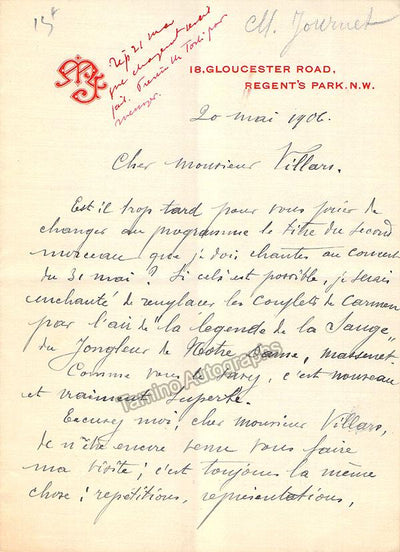 15f
M. Journet
Rép 21 mai
que changement serait
fait.
18. GLOUCESTER ROAD,
REGENT'S PARK. N.W.
20 mai 1906.
Cher monsieur Villars.
Est il trop tard pour vous prier de
changer au programme le titre du second
morceau que je dois chanter au concert
du 31 mai? Si cela est possible, je serais
enchanté de remplacer les couplets de Carmen
par l'air de "la légende de la Sauge"
du Jongleur de Notre Dame, massenet.
Comme vous le savez, c'est nouveau
et vraiment superbe.
Excusez moi, cher monsieur Villars,
de n'être encore venu vous faire
ma visite; c'est toujours la même
chose; repétitions, représentations,
Tamino Autographs